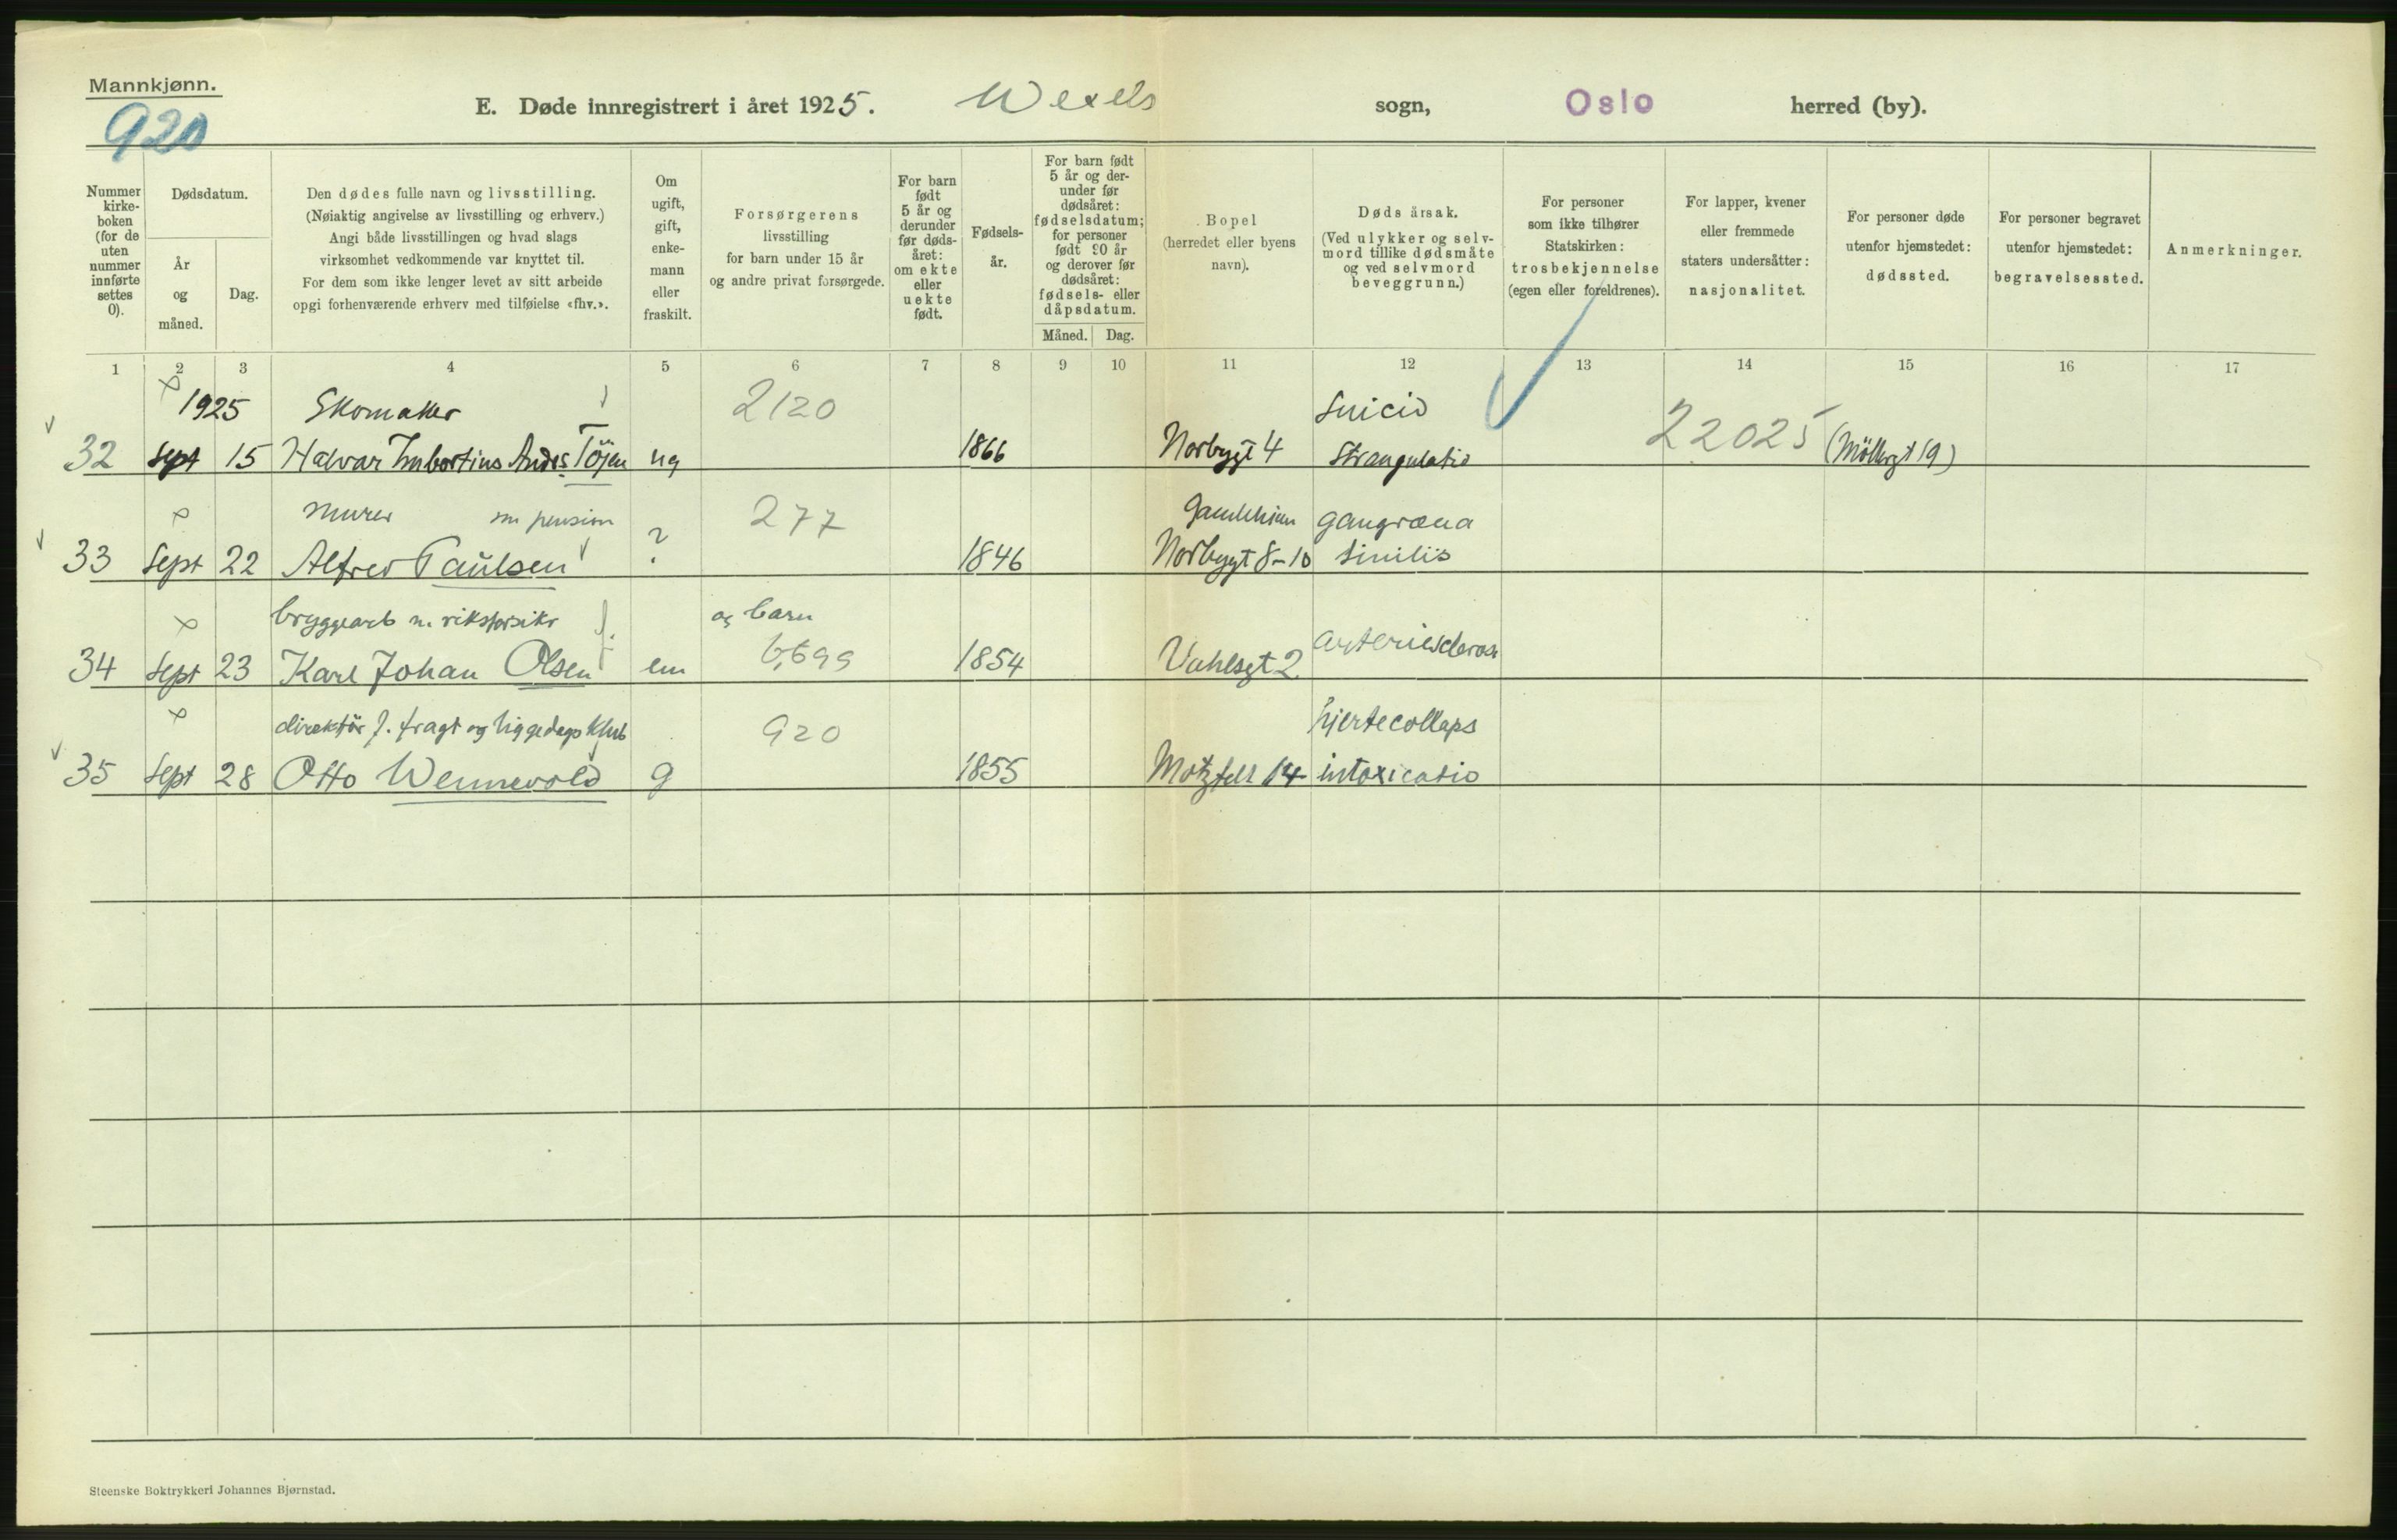 Mannkjønn.
920
E. Døde innregistrert i året 1925. Wexels sogn, Oslo herred (by).
Nummer
kirke-
boken
(for de
uten
nummer
innførte
settes
0).
Dødsdatum.
År
og
måned.
Dag.
Den dødes fulle navn og livsstilling.
(Nøiaktig angivelse av livsstilling og erhverv.)
Angi både livsstillingen og hvad slags
virksomhet vedkommende var knyttet til.
For dem som ikke lenger levet av sitt arbeide
opgi forhenværende erhverv med tilføielse «fhv.».
Om
ugift,
gift,
enke-
mann
eller
fraskilt.
Forsørgerens
livsstilling
for barn under 15 år
og andre privat forsørgede.
For barn
født
5 år og
derunder
før døds-
året:
om ekte
eller
uekte
født.
Fødsels-
år.
For barn født
5 år og der-
under før
dødsåret:
fødselsdatum;
for personer
født 90 år
og derover før
dødsåret:
fødsels- eller
dåpsdatum.
Måned. Dag.
Bopel
(herredet eller byens
navn).
Døds årsak.
(Ved ulykker og selv-
mord tillike dødsmåte
og ved selvmord
beveggrunn.)
For personer
som ikke tilhører
Statskirken:
trosbekjennelse
(egen eller foreldrenes).
For lapper, kvener
eller fremmede
staters undersåtter:
nasjonalitet.
For personer døde
utenfor hjemstedet:
dødssted.
For personer begravet
utenfor hjemstedet:
begravelsessted.
Anmerkninger.
1 2 3 4 5 6 7 8 9 10 11 12 13 14 15 16 17
1925 Skomaker 2120 Suicid
32 Sept 15 Halvar Andrs Töjen ug 1866 Norbygt 4 Strangulatio 22025 (Möllergt 19)
murer m pension 277 Gamlehjem gangræna
33 Sept 22 Alfred Paulsen ? 1846 Norbygt 8-10 sinilis
bryggearb m riksforsikr og barn
34 Sept 23 Karl Johan Olsen em 6,699 1854 Vahlsgt 2 arteriesclerose
direktör f. fragt og liggedags klub 920 hjertecollaps
35 Sept 28 Otto Wennevold g 1855 Motzfelt 14 intoxicatio
Steenske Boktrykkeri Johannes Bjørnstad.